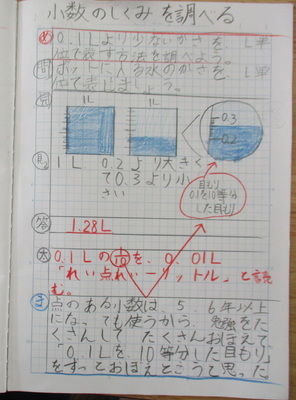 小数のしくみを調べる
め 0.1Lより少ないかさを L単
位で表す方法を調べよう。
問 ポットに入る水のかさを L単
位で表しましょう。
図
1L 1L
0.3
0.2
1L 0.2より大きく
て0.3より小
さい
目もり
0.1を10等分
した目もり
答 1.28L
大 0.1Lの 1/10 を、0.01L
「れい点れいーリットル」と読
む。
ま 点のある小数は、5、6年以上
になっても使うから、勉強をた
くさんして、たくさんおぼえて
「0.1Lを、10等分した目もり」
をずっとおぼえとこうと思った。